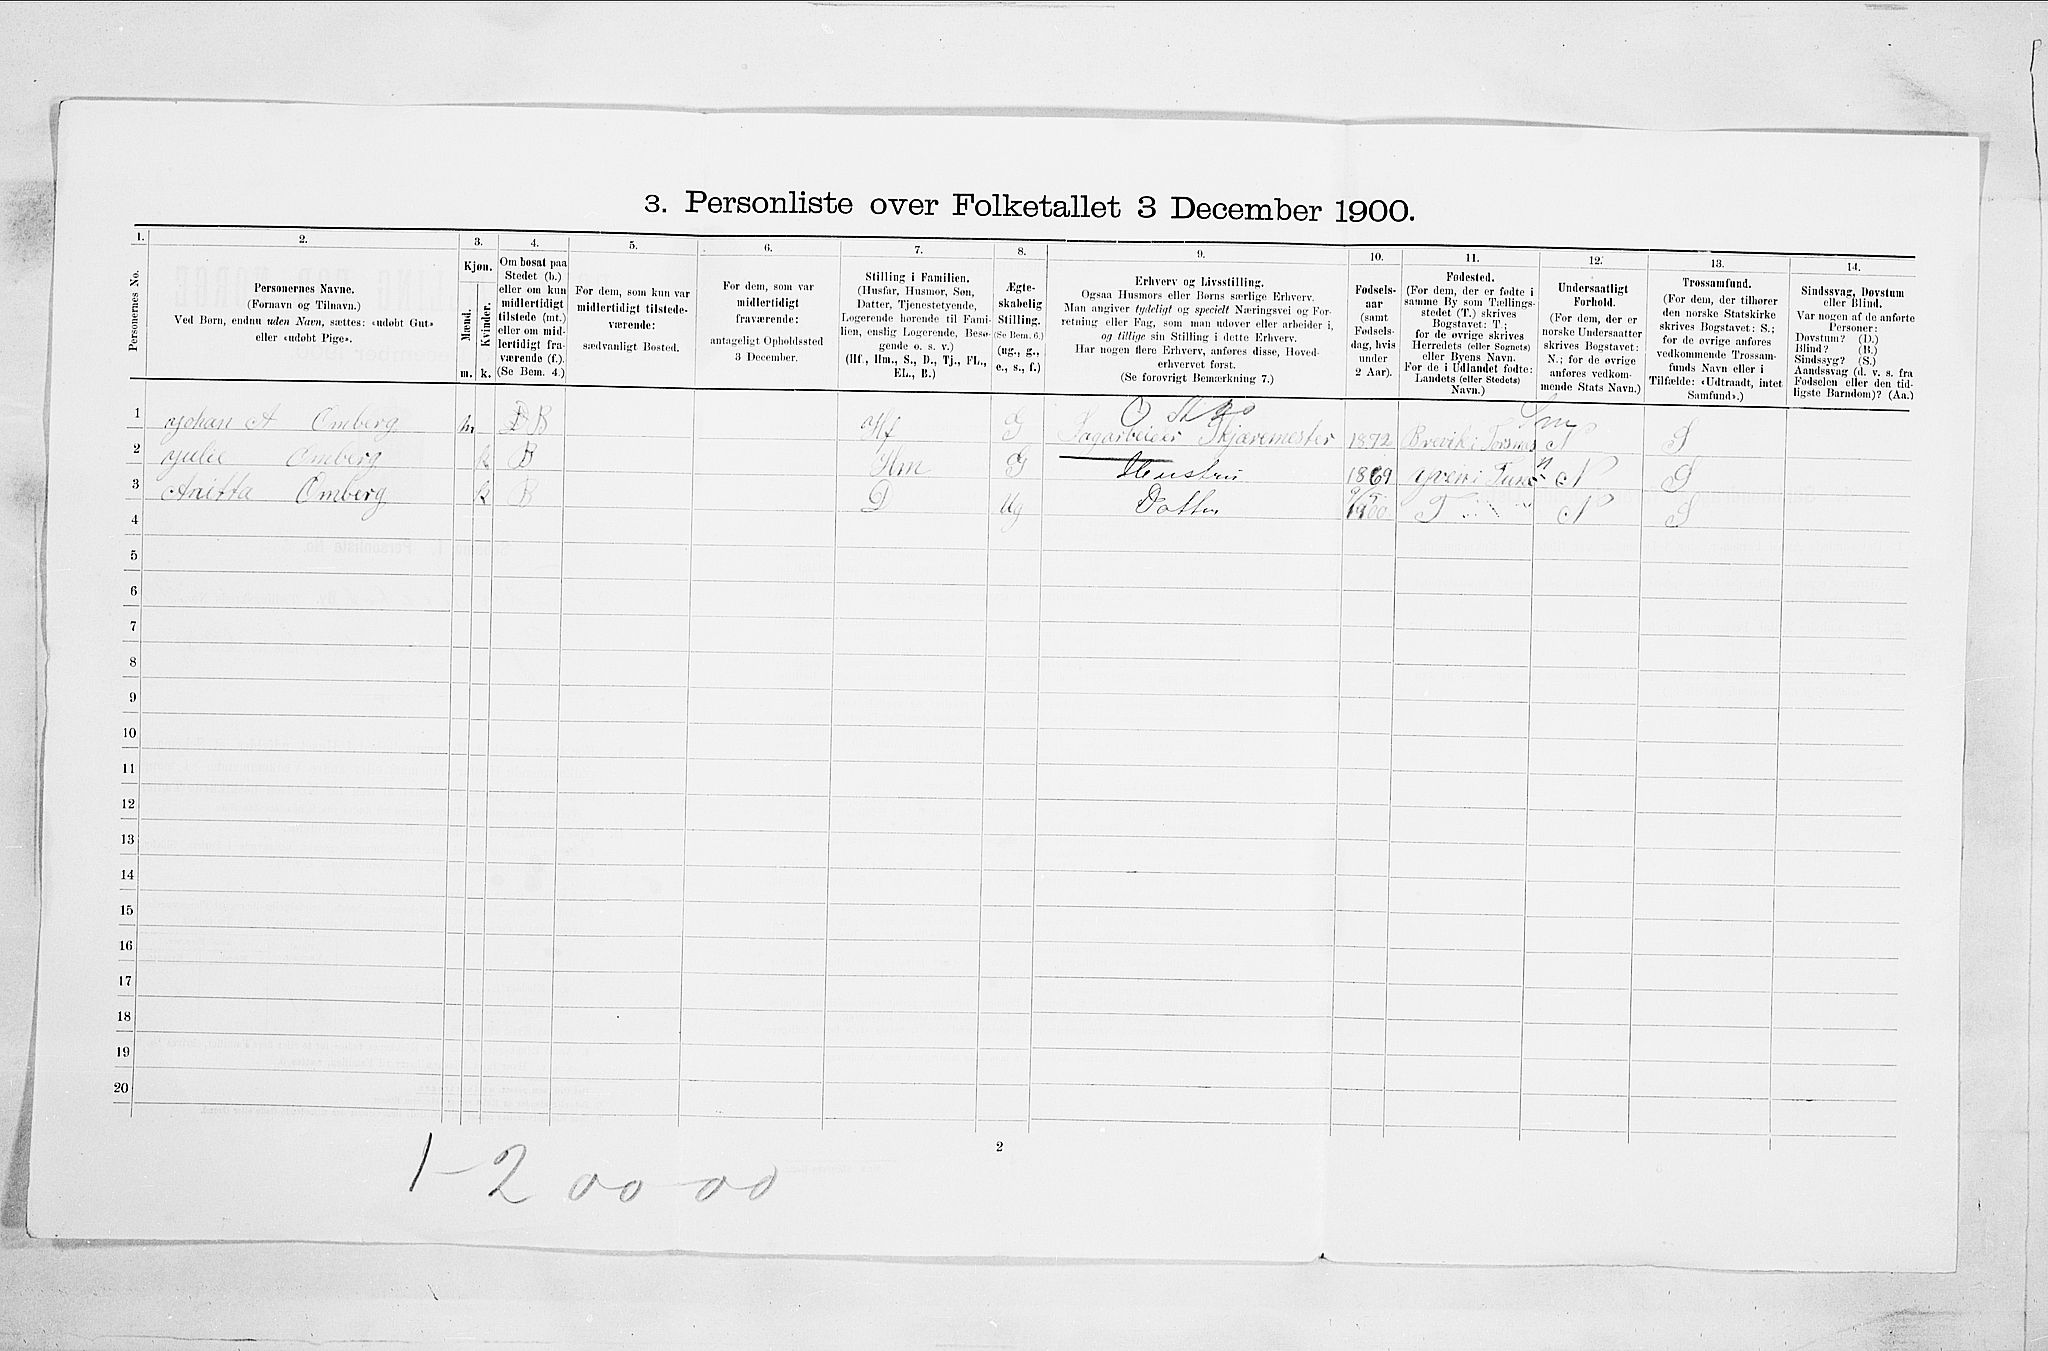 3. Personliste over Folketallet 3 December 1900.
1. 2. 3. 4. 5. 6. 7. 8. 9. 10. 11. 12. 13. 14.
Personernes No.
Personernes Navne.
(Fornavn og Tilnavn.)
Ved Børn, endnu uden Navn, sættes: «udøbt Gut»
eller «udøbt Pige».
Kjøn.
Mænd.
Kvinder.
m. k.
Om bosat paa
Stedet (b.)
eller om kun
midlertidigt
tilstede (mt.)
eller om mid-
lertidigt fra-
værende (f.).
(Se Bem. 4.)
For dem, som kun var
midlertidigt tilstede-
værende:
sædvanligt Bosted.
For dem, som var
midlertidigt
fraværende:
antageligt Opholdssted
3 December.
Stilling i Familien.
(Husfar, Husmor, Søn,
Datter, Tjenestetyende,
Logerende hørende til Fami-
lien, enslig Logerende, Besø-
gende o. s. v.)
(Hf., Hm., S., D., Tj., FL.,
EL., B.)
Ægte-
skabelig
Stilling.
(Se Bem. 6.)
(ug., g.,
e., s., f.)
Erhverv og Livsstilling.
Ogsaa Husmors eller Børns særlige Erhverv.
Man angiver tydeligt og specielt Næringsvei og For-
retning eller Fag, som man udøver eller arbeider i,
og tillige sin Stilling i dette Erhverv.
Har nogen flere Erhverv, anføres disse, Hoved-
erhvervet først.
(Se forøvrigt Bemærkning 7.)
Fødsels-
aar
(samt
Fødsels-
dag, hvis
under
2 Aar).
Fødested.
(For dem, der er fødte i
samme By som Tællings-
stedet (T.) skrives
Bogstavet: T.;
for de øvrige skrives
Herredets (eller Sognets)
eller Byens Navn.
For de i Udlandet fødte:
Landets (eller Stedets)
Navn.)
Undersaatligt
Forhold.
(For dem, der er
norske Undersaatter
skrives Bogstavet:
N.; for de øvrige
anføres vedkom-
mende Stats Navn.)
Trossamfund.
(For dem, der tilhører
den norske Statskirke
skrives Bogstavet: S.;
for de øvrige anføres
vedkommende Trossam-
funds Navn eller i
Tilfælde: «Udtraadt, intet
Samfund».)
Sindssvag, Døvstum
eller Blind.
Var nogen af de anførte
Personer:
Døvstum? (D.)
Blind? (B.)
Sindssyg? (S.)
Aandssvag (d. v. s. fra
Fødselen eller den tid-
ligste Barndom)? (Aa.)
1 Johan A Omberg m B Hf G Sagarbeider Skjæremester 1872 Brevik i N S
2 Julie Omberg k B Hm G Hustru 1869 Yven i Tune N S
3 Anitta Omberg k B D Ug Datter T N S
4
5
6
7
8
9
10
11
12
13
14
15
16
17
18
19
20
2
1-2 00-00